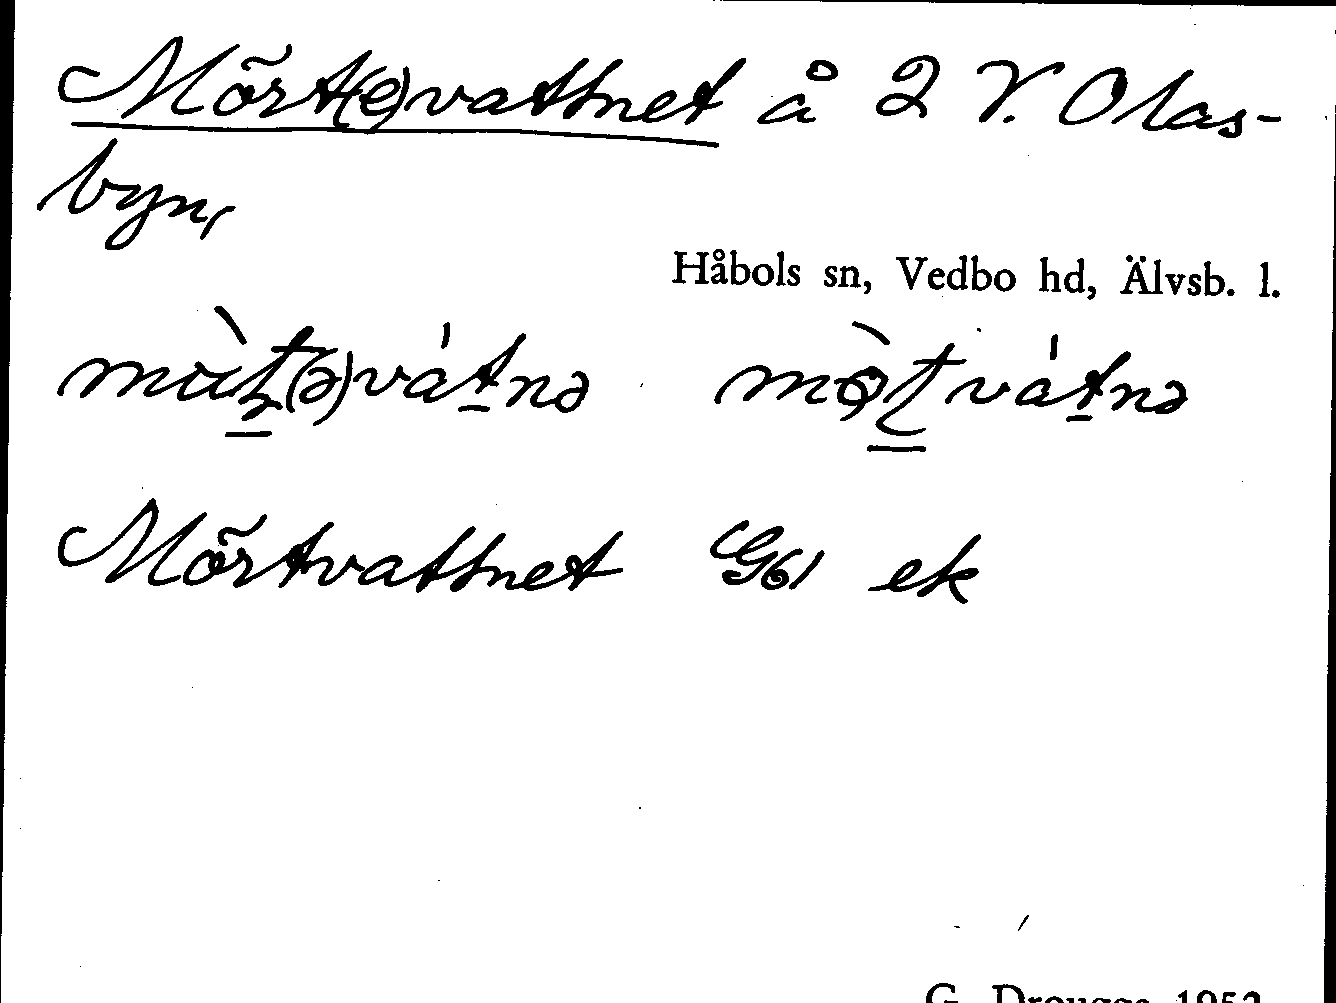 Mört(e)vattnet å 2 V. Olas-
byn,
Håbols sn, Vedbo hd, Älvsb. l.
Mörtvattnet G61 ek
G. Drougge 1952